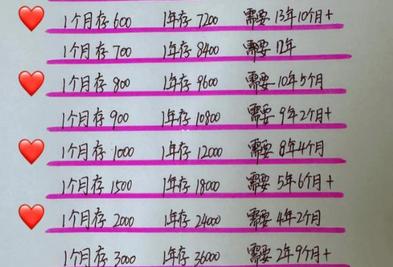 1个月存600 1年存7200 需要13年10个月+
1个月存700 1年存8400 需要12年
1个月存800 1年存9600 需要10年5个月
1个月存900 1年存10800 需要9年2个月+
1个月存1000 1年存12000 需要8年4个月
1个月存1500 1年存18000 需要5年6个月+
1个月存2000 1年存24000 需要4年2个月
1个月存3000 1年存36000 需要2年9个月+